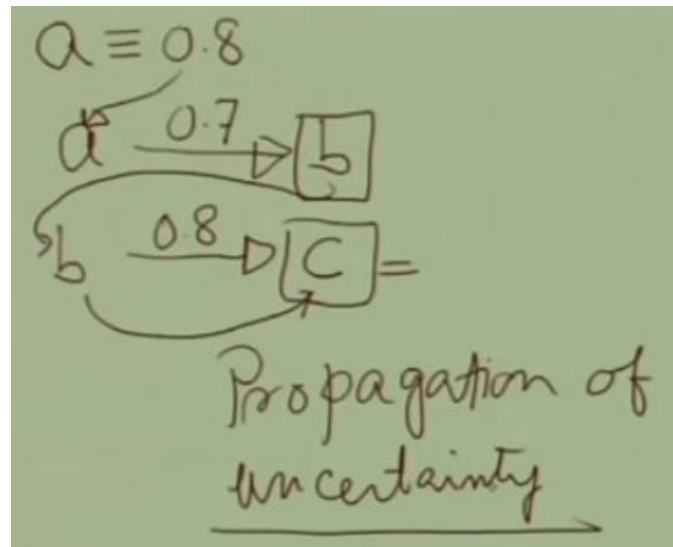 a ≡ 0.8
a 0.7 b
b 0.8 c =
Propagation of
uncertainty